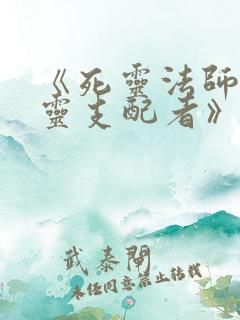 《死靈法師
靈支配者》
武泰閣
未經同意禁止轉載